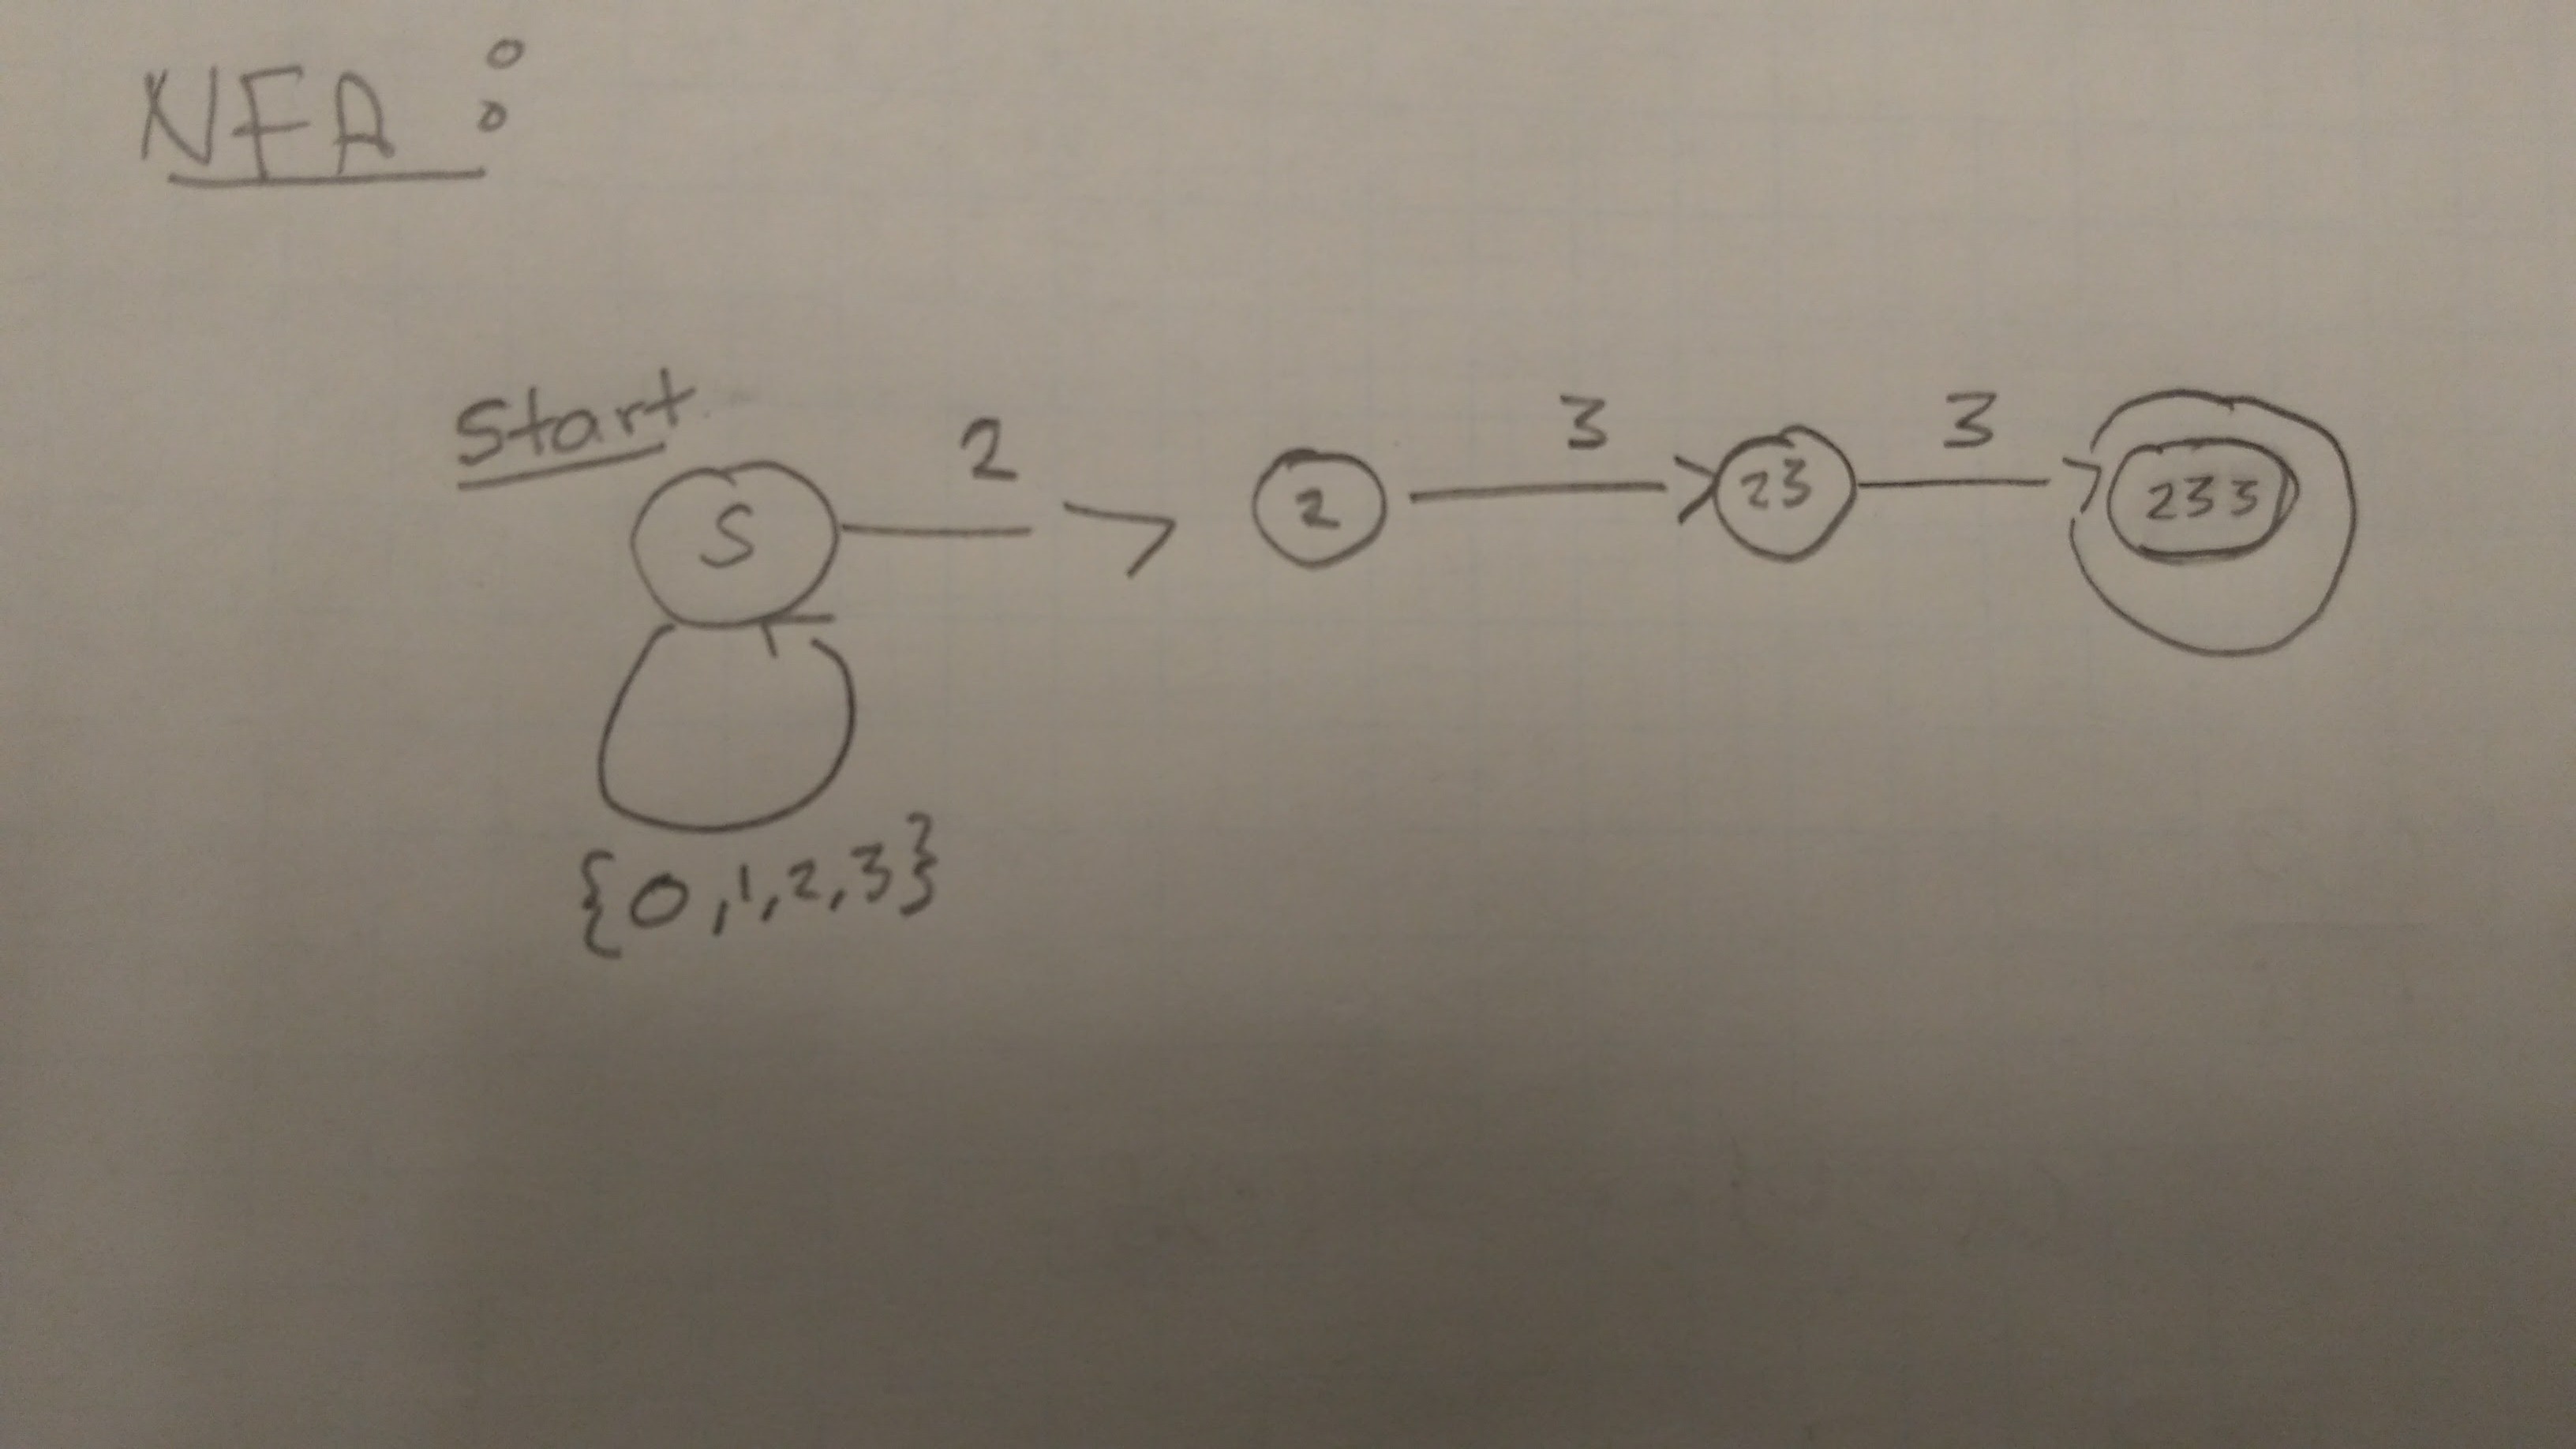 NFA :
Start
S 2 2 3 23 3 233
{0,1,2,3}